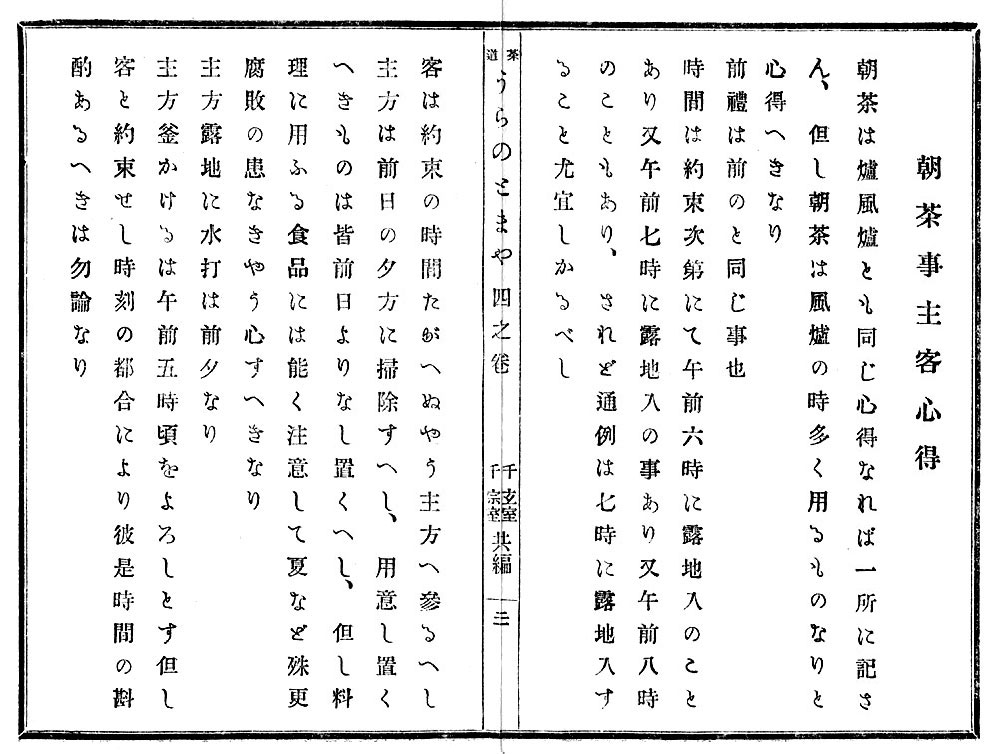 朝茶事主客心得
朝茶は爐風爐とも同じ心得なれば一所に記さ
ん、但し朝茶は風爐の時多く用るものなりと
心得へきなり
前禮は前のと同じ事也
時間は約束次第にて午前六時に露地入のこと
あり又午前七時に露地入の事あり又午前八時
のこともあり、されど通例は七時に露地入す
ることと尤宜しかるべし
茶道 うらのとまや 四之卷 千玄室 千宗室 共編 三
客は約束の時間たがへぬやう主方へ參るへし
主方は前日の夕方に掃除すへし、用意し置く
へきものは皆前日よりなし置くへし、但し料
理に用ふる食品には能く注意して夏など殊更
腐敗の患なきやう心すへきなり
主方露地に水打は前夕なり
主方釜かけるは午前五時頃をよろしとす但し
客と約束せし時刻の都合により彼是時間の斟
酌あるへきは勿論なり